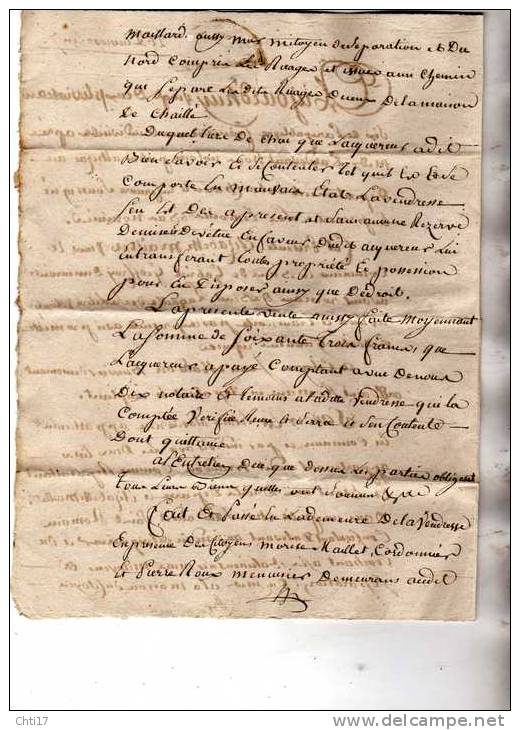 Maillard, aussy mur mitoyen de separation et Du
Nord Compris les Ruages et issues aun Chemin
qui separe les dits Ruages d'iceux de la maison
Le Chaille
Duquel Lieu de Chai que Lacquereur a dit
Bien Savoir et Se Contenter tel quil Ex Este
Comporte En Mauvais Etat. La vendresse
Sen Est Des apresent et Sans aucune Rezerve
Demise Devetue En faveur Dudit acquereur Lui
transferant toutes propriété Et possession
pour En Disposer aussy que De droit.
La presente vente aussy faite Moyennant
La Somme de Soixante Trois francs, que
Lacquereur a payé Comptant a vue De nous
Dix notaire et temoins a ladite Vendresse qui la
Comptée Verifiée Serré a Sen Contente
Dont quittance
a l'Entretien De ce que dessus Les parties obligent
Tous Leurs Biens
Fait Et Passé En La demeure De la Vendresse
En presence Des Citoyens Maillet, Cordonnier
et Pierre Roux menuisier Demeurans audit
Chti17
www.delcampe.net